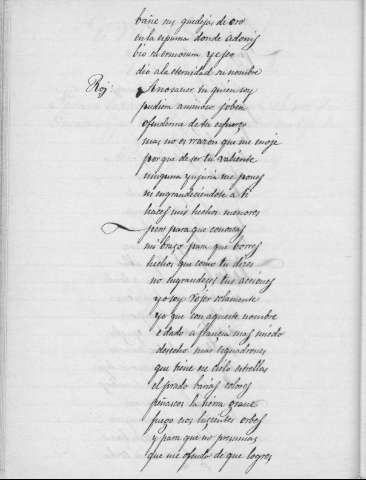 bañe sus guedejas de oro
en la espuma donde adonis
vio su ermosura y es por
dio a la eternidad su nombre
Roj
A no saver tu quien soy
pudiera animoso joben
ofenderme de tu esfuerzo
mas no es rrazon que me enoje
por que de ser tu valiente
ninguna ynjuria me pones
ni engrandeciendote a ti
haces mis hechos menores
pero para que conozcas
mi brazo para que borres
hechos que como tu dices
no engrandeces tus acciones
yo soy Rojer solamente
yo que con aqueste nombre
e dado a francia mas miedo
desecho mas esquadrones
que tiene ese cielo estrellas
el prado barias colores
peñascos la tierra grave
fuego esos luzientes orbes
y para que no presumas
que me ofendo de que logres